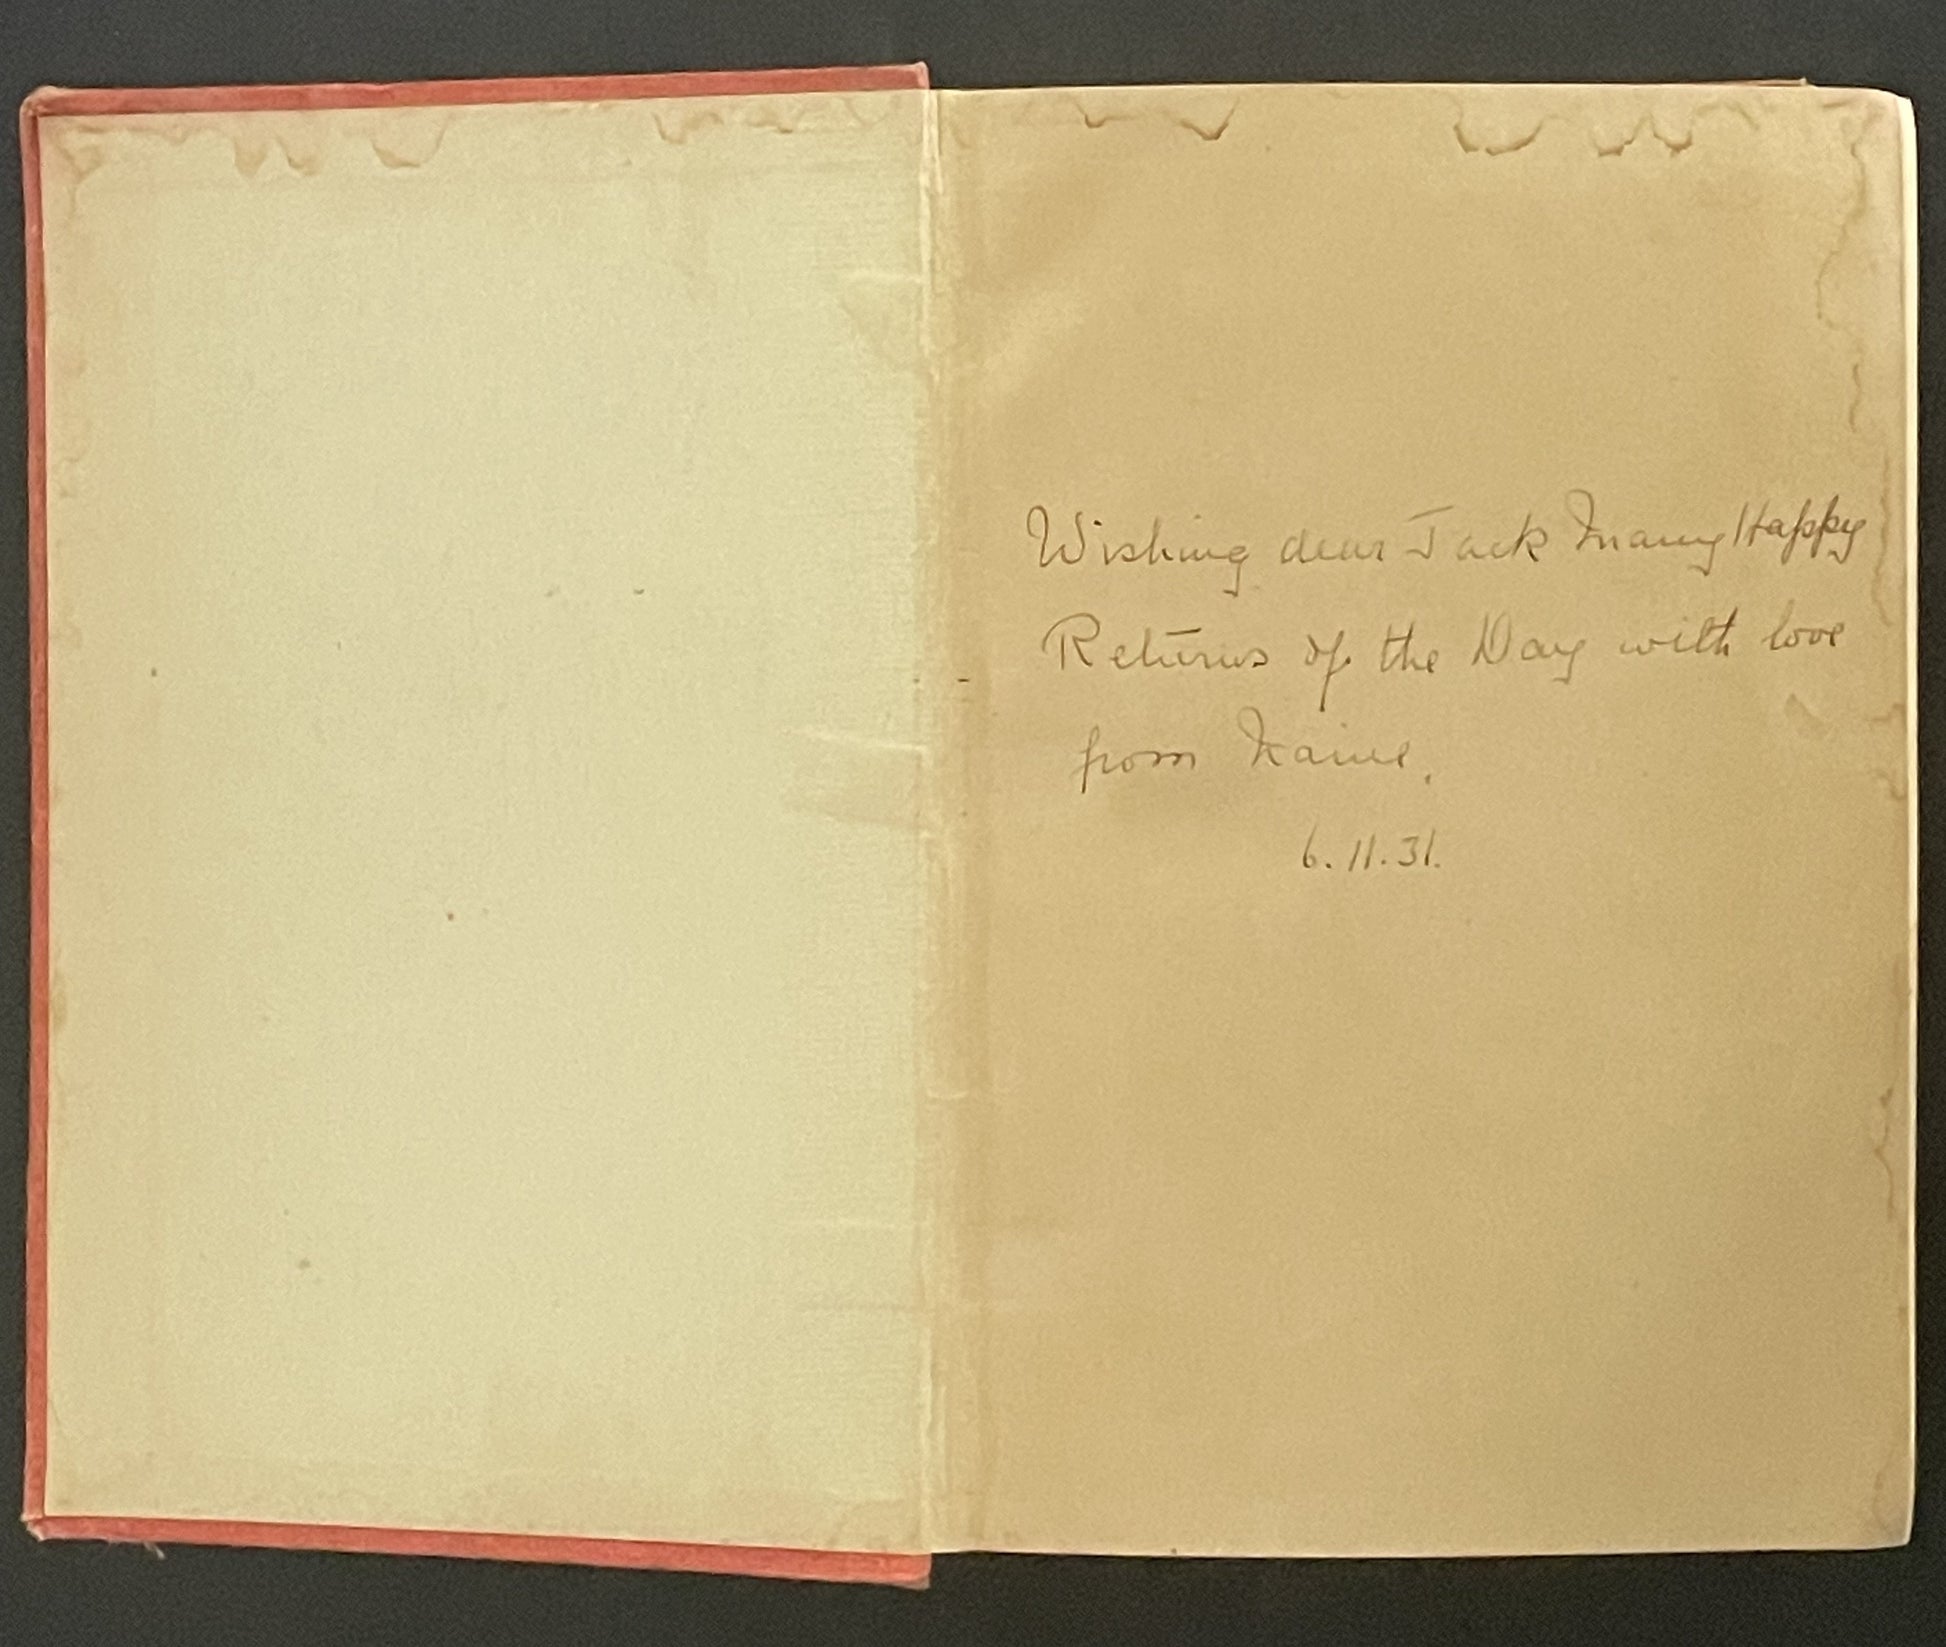 Wishing dear Jack Many Happy
Returns of the Day with love
from
6.11.31.